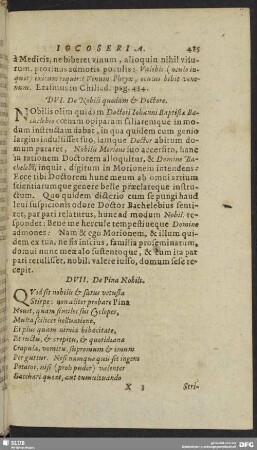 IOCOSERIA. 485
à Medicis, ne biberet vinum, alioquin nihil vitu-
rum, proximus admotis poculis: Valebis (oculo in-
quit) exitium reperit: Vinum Phryx, oculus bibit vene-
num. Erasmus in Chiliad. pag. 434.
DVI. De Nobili quodam & Doctore.
NObilis olim quidam Doctori Iohanni Baptistæ Ba-
cœnam opiparam filiatemque in mo-
dum instructam dabat, in qua quidem cum genio
largius indulsisset suo, iamque Doctor abitum do-
mum pararet, Nobilis Morione suo accersito, hanc
in rationem Doctorem alloquitur, & Domine Ba-
chelebi, inquit, digitum in Morionem intendens:
Ecce tibi Doctorem hunc meum ab omni artium
scientiarumque genere belle præclareque instru-
ctum. Quo quidem dicterio cum se pungi haud
levi suspicionis odore Doctor Bachelebius sensi-
ret, par pari relaturus, hunc ad modum Nobil. re-
spondet: Bene me hercule tempestiueque Domine
admones: Nam & ego Morionem, & illum qui-
dem ex tua, ne sis inscius, familia proseminatum,
domi nunc meæ alo sustentoque, & cum ita par
pari retulisset, nobili valere iusso, domum sese re-
cepit.
DVII. De Pina Nobili.
QVid sit nobilis & satus vetusta
Stirpe: non aliter probare Pina
Nouit, quam similis sui Cyclopes,
Multa scilicet helluatione,
Et plus quam nimia bibacitate,
Et ructu, & crepitu, & quotidiana
Crapula, vomitu, supremum & imum
Per guttur. Nisi numque quis sit ingens
Potator, nisi (proh pudor) valenter
Bacchari queat, aut tumultuando
X 3 Stri-